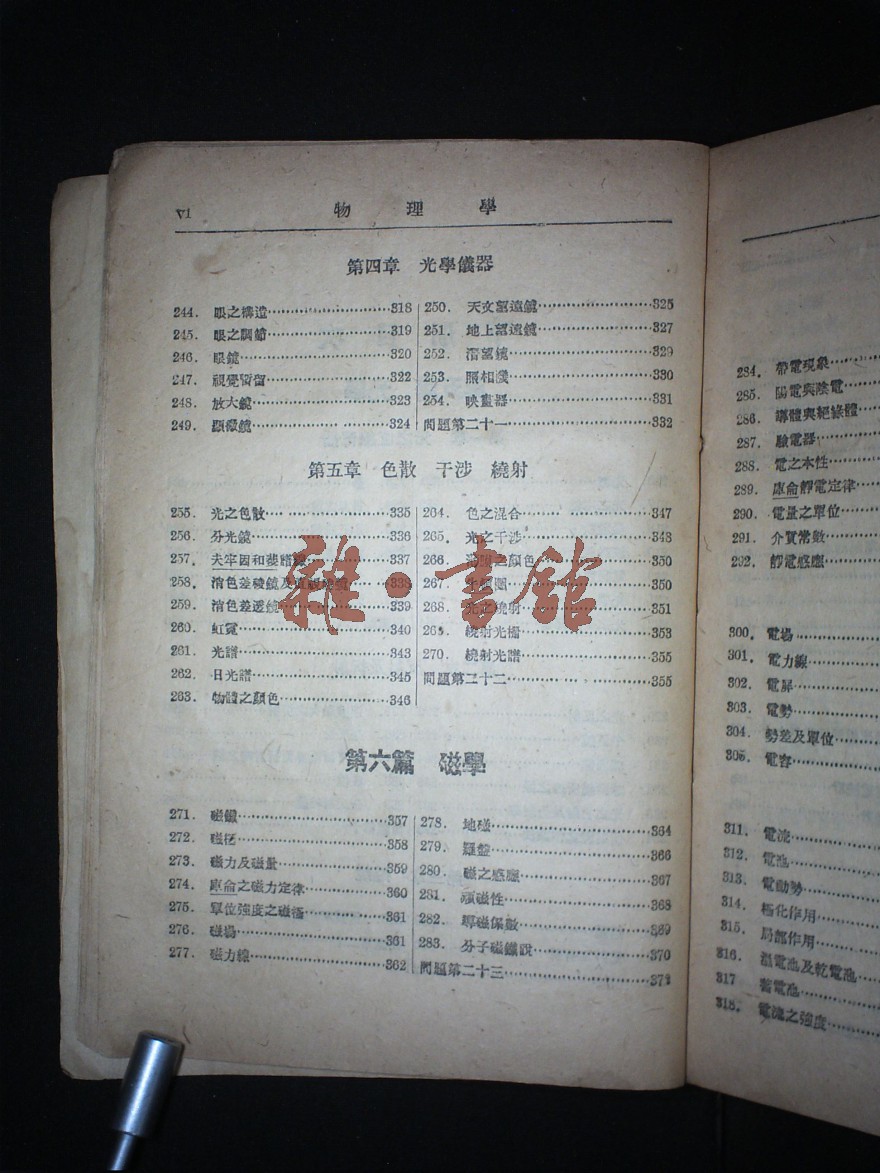 VI
物理學
第四章 光學儀器
244. 眼之構造 318
245. 眼之調節 319
246. 眼鏡 320
247. 視覺暫留 322
248. 放大鏡 323
249. 顯微鏡 324
250. 天文望遠鏡 325
251. 地上望遠鏡 327
252. 潛望鏡 329
253. 照相機 330
254. 映畫器 331
問題第二十一 332
第五章 色散 干涉 繞射
255. 光之色散 335
256. 分光鏡 336
257. 夫牢因和斐譜線 337
258. 消色差稜鏡及直視稜鏡 338
259. 消色差透鏡 339
260. 虹霓 340
261. 光譜 343
262. 日光譜 345
263. 物體之顏色 346
264. 色之混合 347
265. 光之干涉 348
266. 薄膜之顏色 350
267. 牛頓圈 350
268. 光之繞射 351
269. 繞射光柵 353
270. 繞射光譜 355
問題第二十二 355
雜·書館
第六篇 磁學
271. 磁鐵 357
272. 磁極 358
273. 磁力及磁量 359
274. 庫侖之磁力定律 360
275. 單位強度之磁極 361
276. 磁場 361
277. 磁力線 362
278. 地磁 364
279. 羅盤 366
280. 磁之感應 367
281. 頑磁性 368
282. 導磁係數 369
283. 分子磁鐵說 370
問題第二十三 371
284. 帶電現象
285. 陽電與陰電
286. 導體與絕緣體
287. 驗電器
288. 電之本性
289. 庫侖靜電定律
290. 電量之單位
291. 介質常數
292. 靜電感應
300. 電場
301. 電力線
302. 電屏
303. 電勢
304. 勢差及單位
305. 電容
311. 電流
312. 電池
313. 電動勢
314. 極化作用
315. 局部作用
316. 濕電池及乾電池
317 蓄電池
318. 電流之強度